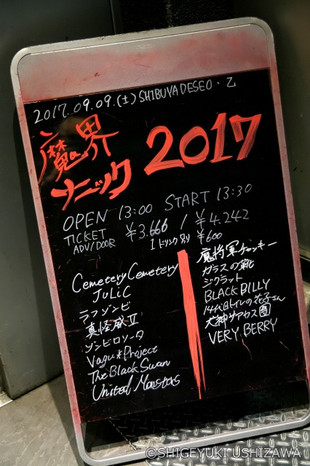 2017.09.09.(土) SHIBUYA DESEO・乙
魔界
ソニック 2017
OPEN 13:00 START 13:30
TICKET ADV/DOOR ¥3.666 / ¥4.242
1ドリンク別 ¥600
Cemetery Cemetery
JULiC
ラフゾンビ
真怪威Ⅱ
ゾンビロリータ
Vagu*Project
The Black Swan
United Monsters
魔将軍チャッキー
ガラスの靴
ジグラット
BLACK BILLY
犬神サアカス團
VERY BERRY
©SHIGEYUKI USHIZAWA